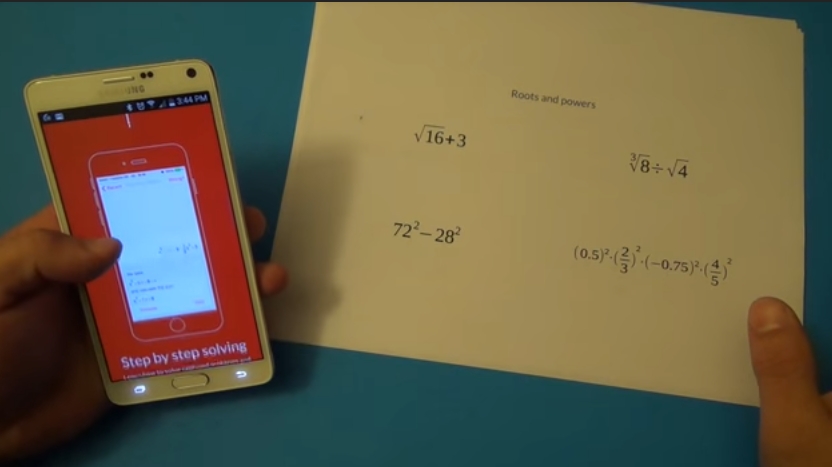 SAMSUNG
3:44 PM
Step by step solving
Roots and powers
√16+3
∛8÷√4
72²−28²
(0.5)²·(2/3)²·(−0.75)²·(4/5)²